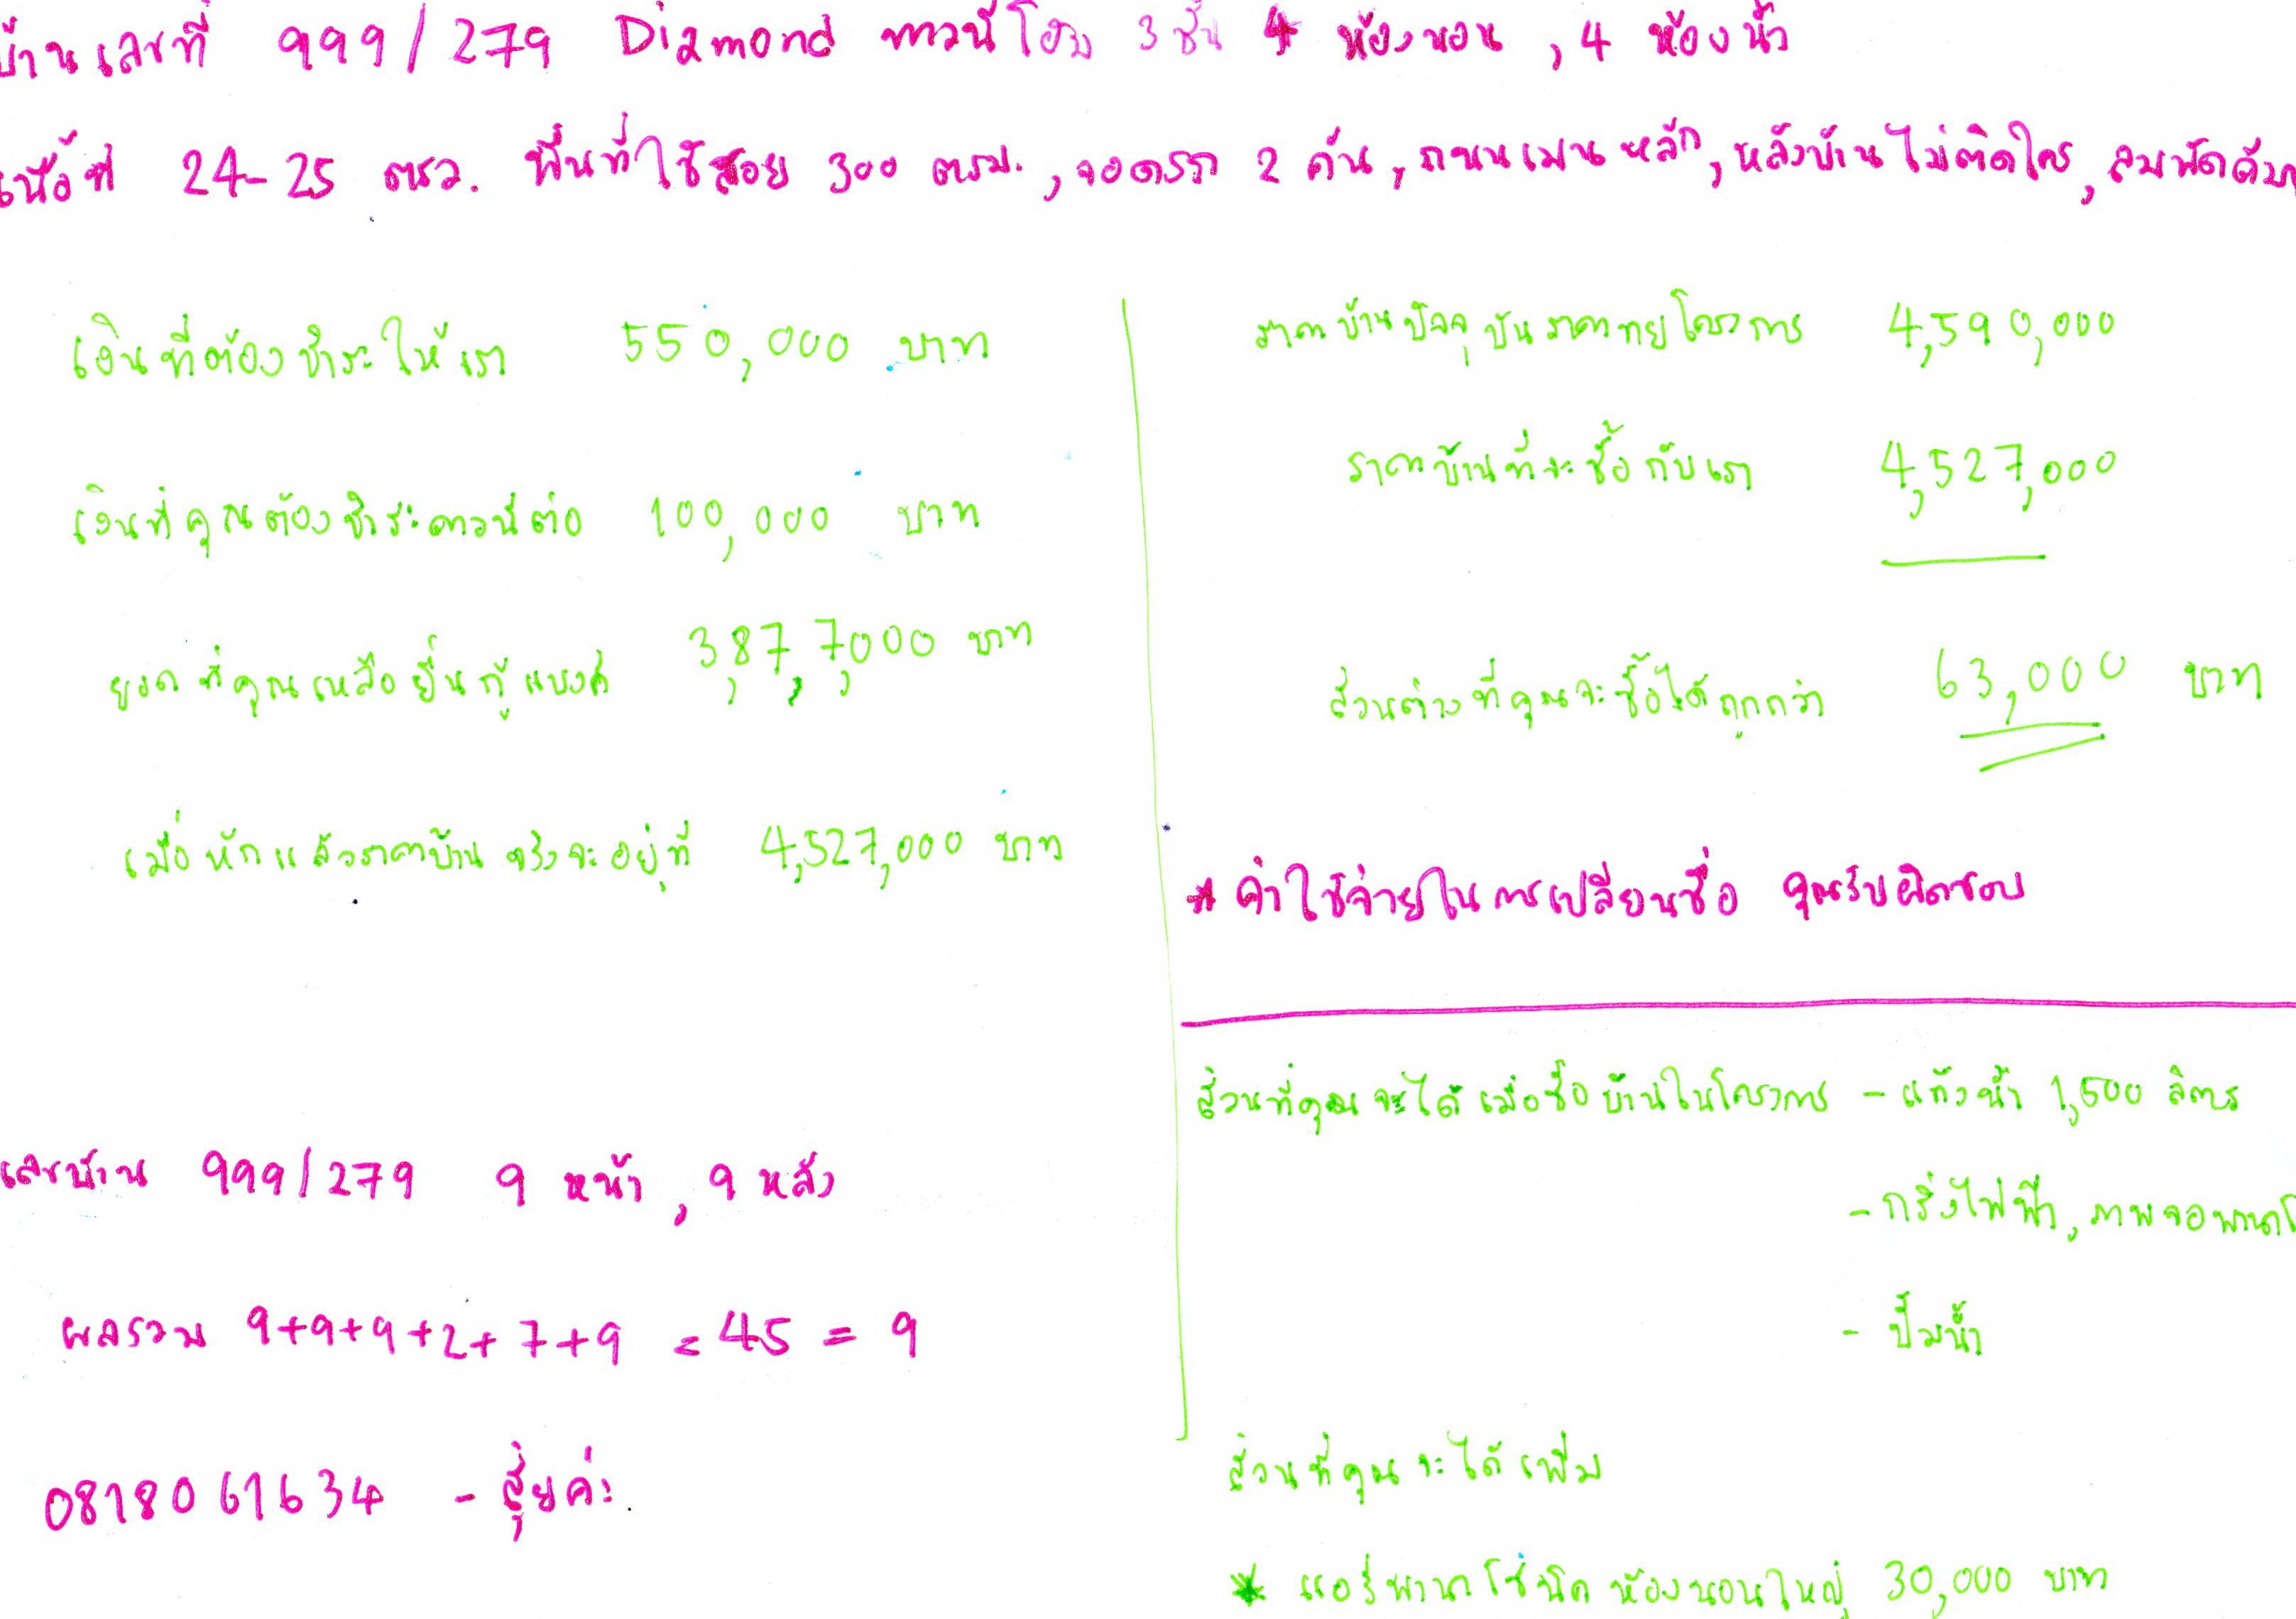 บ้านเลขที่ 999/279 Diamond ทาวน์โฮม 3 ชั้น 4 ห้องนอน , 4 ห้องน้ำ
เนื้อที่ 24-25 ตรว. พื้นที่ใช้สอย 300 ตรม. , จอดรถ 2 คัน , ถนนเมนหลัก , หลังบ้านไม่ติดใคร , ลมพัด
เงินที่ต้องชำระให้เรา 550,000 บาท
เงินที่คุณต้องชำระดาวน์ต่อ 100,000 บาท
ยอดที่คุณเหลือยื่นกู้แบงค์ 3,877,000 บาท
เมื่อหักแล้วราคาบ้านจริงจะอยู่ที่ 4,527,000 บาท
ราคาบ้านปัจจุบันราคาขายโครงการ 4,590,000
ราคาบ้านที่จะซื้อกับเรา 4,527,000
ส่วนต่างที่คุณจะซื้อได้ถูกกว่า 63,000 บาท
* ค่าใช้จ่ายในการเปลี่ยนชื่อ คุณรับผิดชอบ
ส่วนที่คุณจะได้เมื่อซื้อบ้านในโครงการ - แท้งน้ำ 1,500 ลิตร
- กริ่งไฟฟ้า , ภาพจอพานาโ
- ปั๊มน้ำ
ส่วนที่คุณจะได้เพิ่ม
* แอร์พานาโซนิคห้องนอนใหญ่ 30,000 บาท
เลขบ้าน 999/279 9 หน้า , 9 หลัง
ผลรวม 9+9+9+2+7+9 = 45 = 9
0818061634 - สุ่ยค่ะ